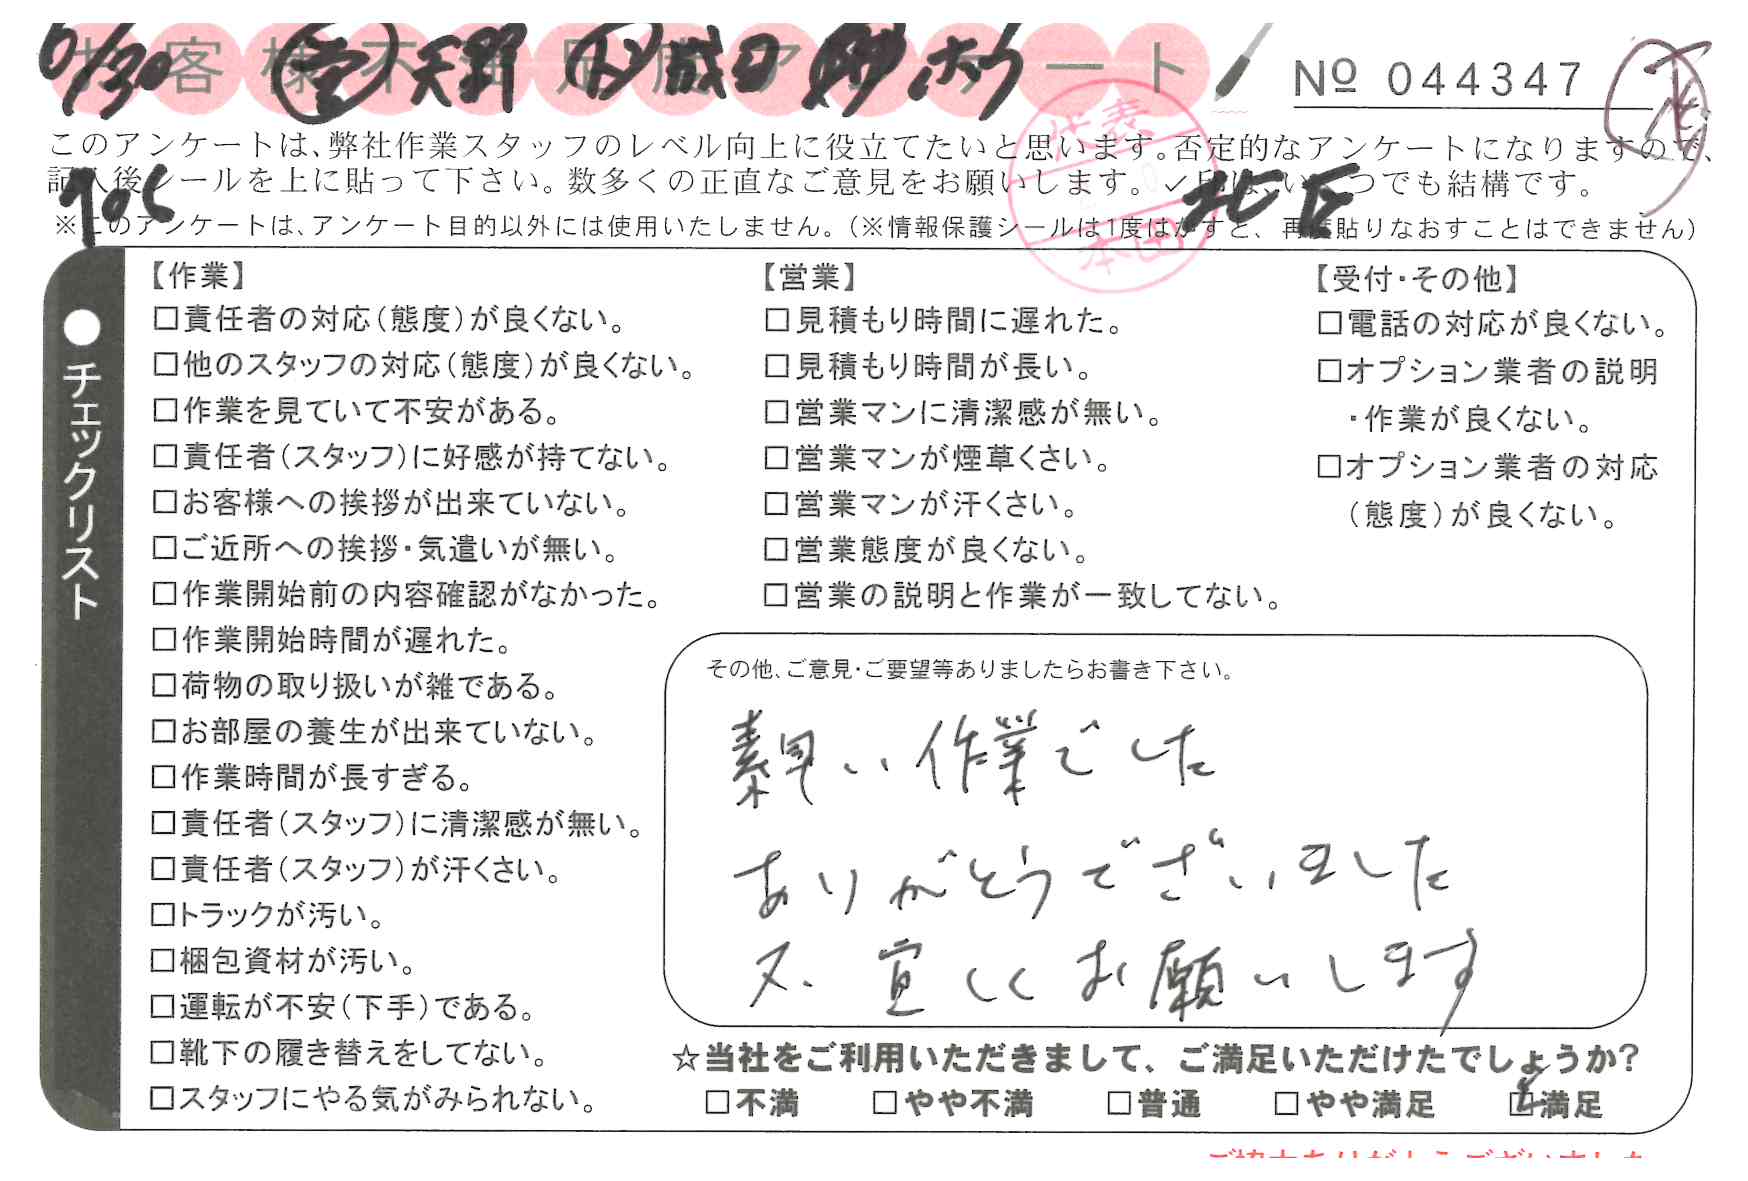 お客様不満足度アンケート
10/30 営 天野 成田
№ 044347
このアンケートは、弊社作業スタッフのレベル向上に役立てたいと思います。否定的なアンケートになりますので、
記入後シールを上に貼って下さい。数多くの正直なご意見をお願いします。✓印は、いくつでも結構です。
※このアンケートは、アンケート目的以外には使用いたしません。（※情報保護シールは1度はがすと、再度貼りなおすことはできません）
代表
本田
●チェックリスト
【作業】
□責任者の対応（態度）が良くない。
□他のスタッフの対応（態度）が良くない。
□作業を見ていて不安がある。
□責任者（スタッフ）に好感が持てない。
□お客様への挨拶が出来ていない。
□ご近所への挨拶・気遣いが無い。
□作業開始前の内容確認がなかった。
□作業開始時間が遅れた。
□荷物の取り扱いが雑である。
□お部屋の養生が出来ていない。
□作業時間が長すぎる。
□責任者（スタッフ）に清潔感が無い。
□責任者（スタッフ）が汗くさい。
□トラックが汚い。
□梱包資材が汚い。
□運転が不安（下手）である。
□靴下の履き替えをしてない。
□スタッフにやる気がみられない。
【営業】
□見積もり時間に遅れた。
□見積もり時間が長い。
□営業マンに清潔感が無い。
□営業マンが煙草くさい。
□営業マンが汗くさい。
□営業態度が良くない。
□営業の説明と作業が一致してない。
【受付・その他】
□電話の対応が良くない。
□オプション業者の説明
・作業が良くない。
□オプション業者の対応
（態度）が良くない。
その他、ご意見・ご要望等ありましたらお書き下さい。
素早い作業でした
ありがとうございました
又、宜しくお願いします
☆当社をご利用いただきまして、ご満足いただけたでしょうか?
□不満 □やや不満 □普通 □やや満足 ☑満足
ご協力ありがとうございました